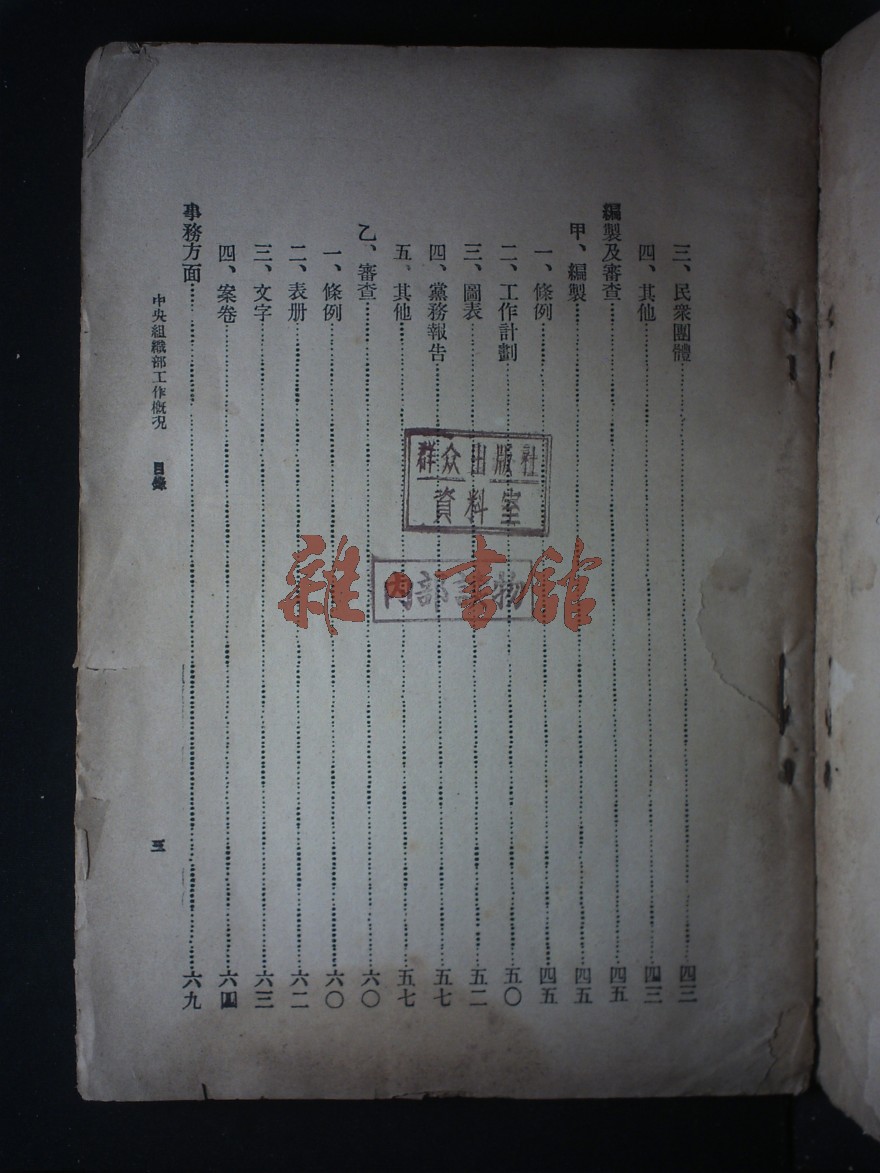 三、民衆團體……四三
四、其他……四三
編製及審查……四五
甲、編製……四五
一、條例……四五
二、工作計劃……五〇
三、圖表……五二
四、黨務報告……五七
五、其他……五七
乙、審查……六〇
一、條例……六〇
二、表册……六二
三、文字……六三
四、案卷……六四
事務方面……六九
中央組織部工作概况　目錄　三
群众出版社
資料室
内部讀物
雜書館